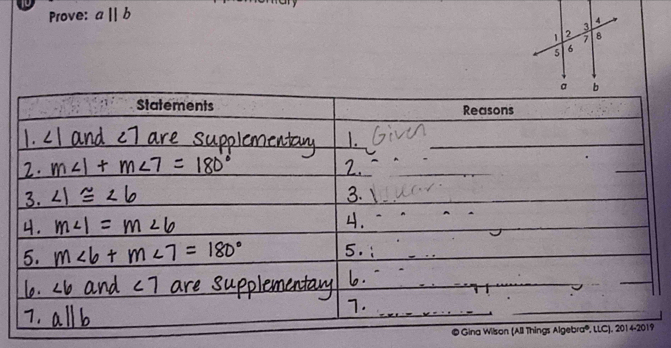 10
Prove: a || b
1 2 3 4
5 6 7 8
a b
Statements Reasons
1. <1 and <7 are supplementary 1. Given
2. m<1 + m<7 = 180° 2.
3. <1 ≅ <6 3.
4. m<1 = m<6 4.
5. m<6 + m<7 = 180° 5.
6. <6 and <7 are supplementary 6.
7. a||b 7.
© Gina Wilson (All Things Algebra®, LLC), 2014-2019